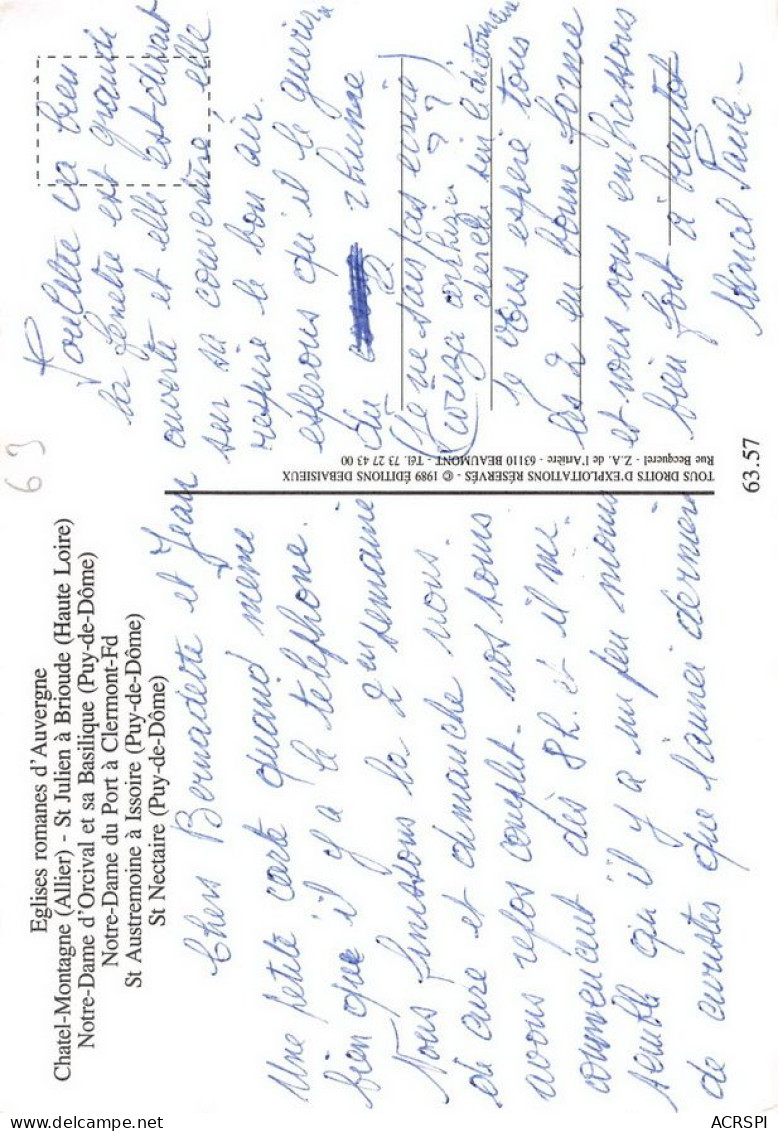 Eglises romanes d'Auvergne
Chatel-Montagne (Allier) - St Julien à Brioude (Haute Loire)
Notre-Dame d'Orcival et sa Basilique (Puy-de-Dôme)
Notre-Dame du Port à Clermont-Fd
St Austremoine à Issoire (Puy-de-Dôme)
St Nectaire (Puy-de-Dôme)
Chers Bernadette et Jean
Une petite carte quand même
bien que il y a le téléphone.
Nous finissons la 2em semaine
de cure et dimanche nous
avons repos complet. nos soins
commencent dès 8h. et il me
semble qu'il y a un peu moins
de curistes que l'année dernière
TOUS DROITS D'EXPLOITATIONS RÉSERVÉS - © 1989 ÉDITIONS DEBAISIEUX
Rue Becquerel - Z.A. de l'Artière - 63110 BEAUMONT - Tél. 73 27 43 00
63.57
63
va bien
la fenêtre est grande
ouverte et elle est devant
sur sa couverture elle
respire le bon air.
espérons qu'il le guérira
du rhume
(je ne sais pas écrire)
(coriza ??)
cherche sur le dictionnaire
je vous espère tous
les 2 en bonne forme
et nous vous embrassons
bien fort à bientôt
Paule -
ACRSPI